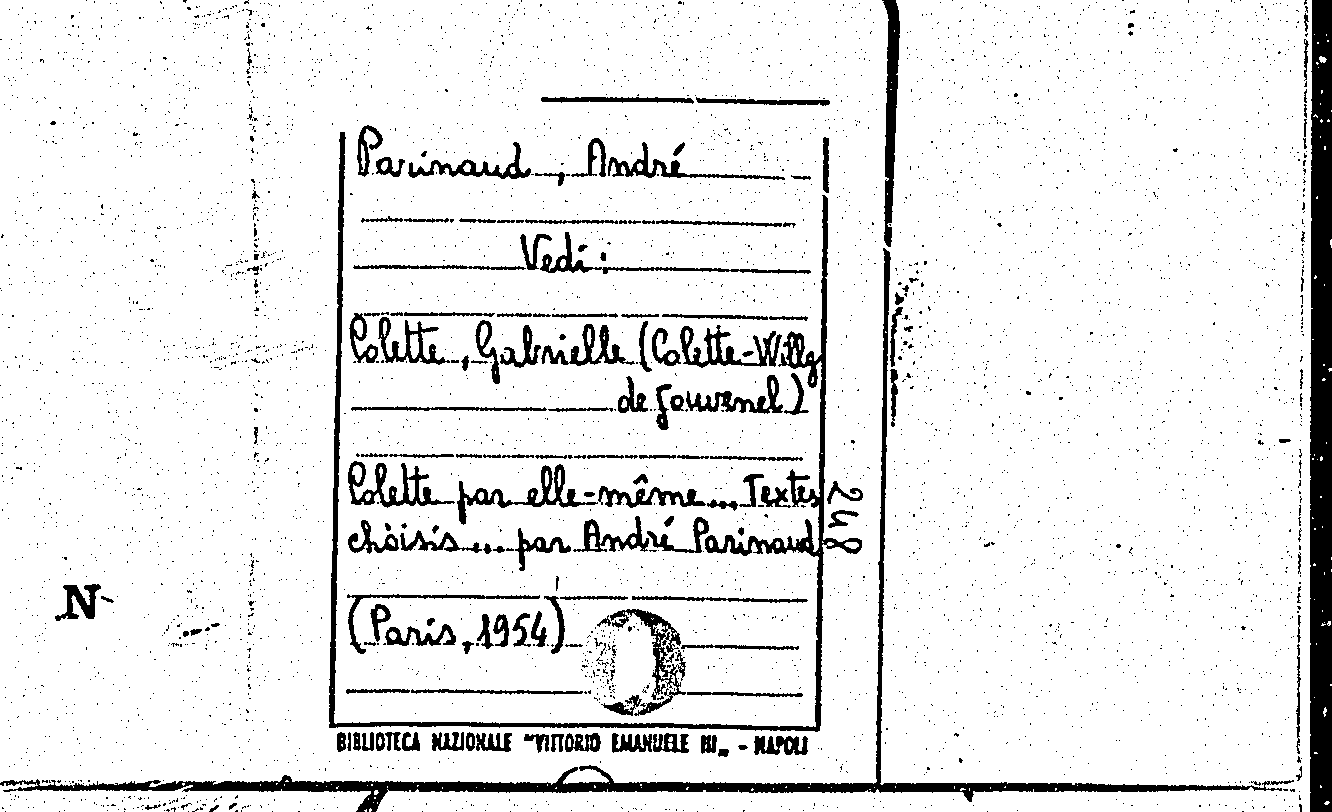 Parinaud, André
Vedi:
Colette, Gabrielle (Colette-Willy
de Jouvenel)
Colette par elle-même... Textes
choisis... par André Parinaud
(Paris, 1954)
248
BIBLIOTECA NAZIONALE "VITTORIO EMANUELE III„ - NAPOLI
N